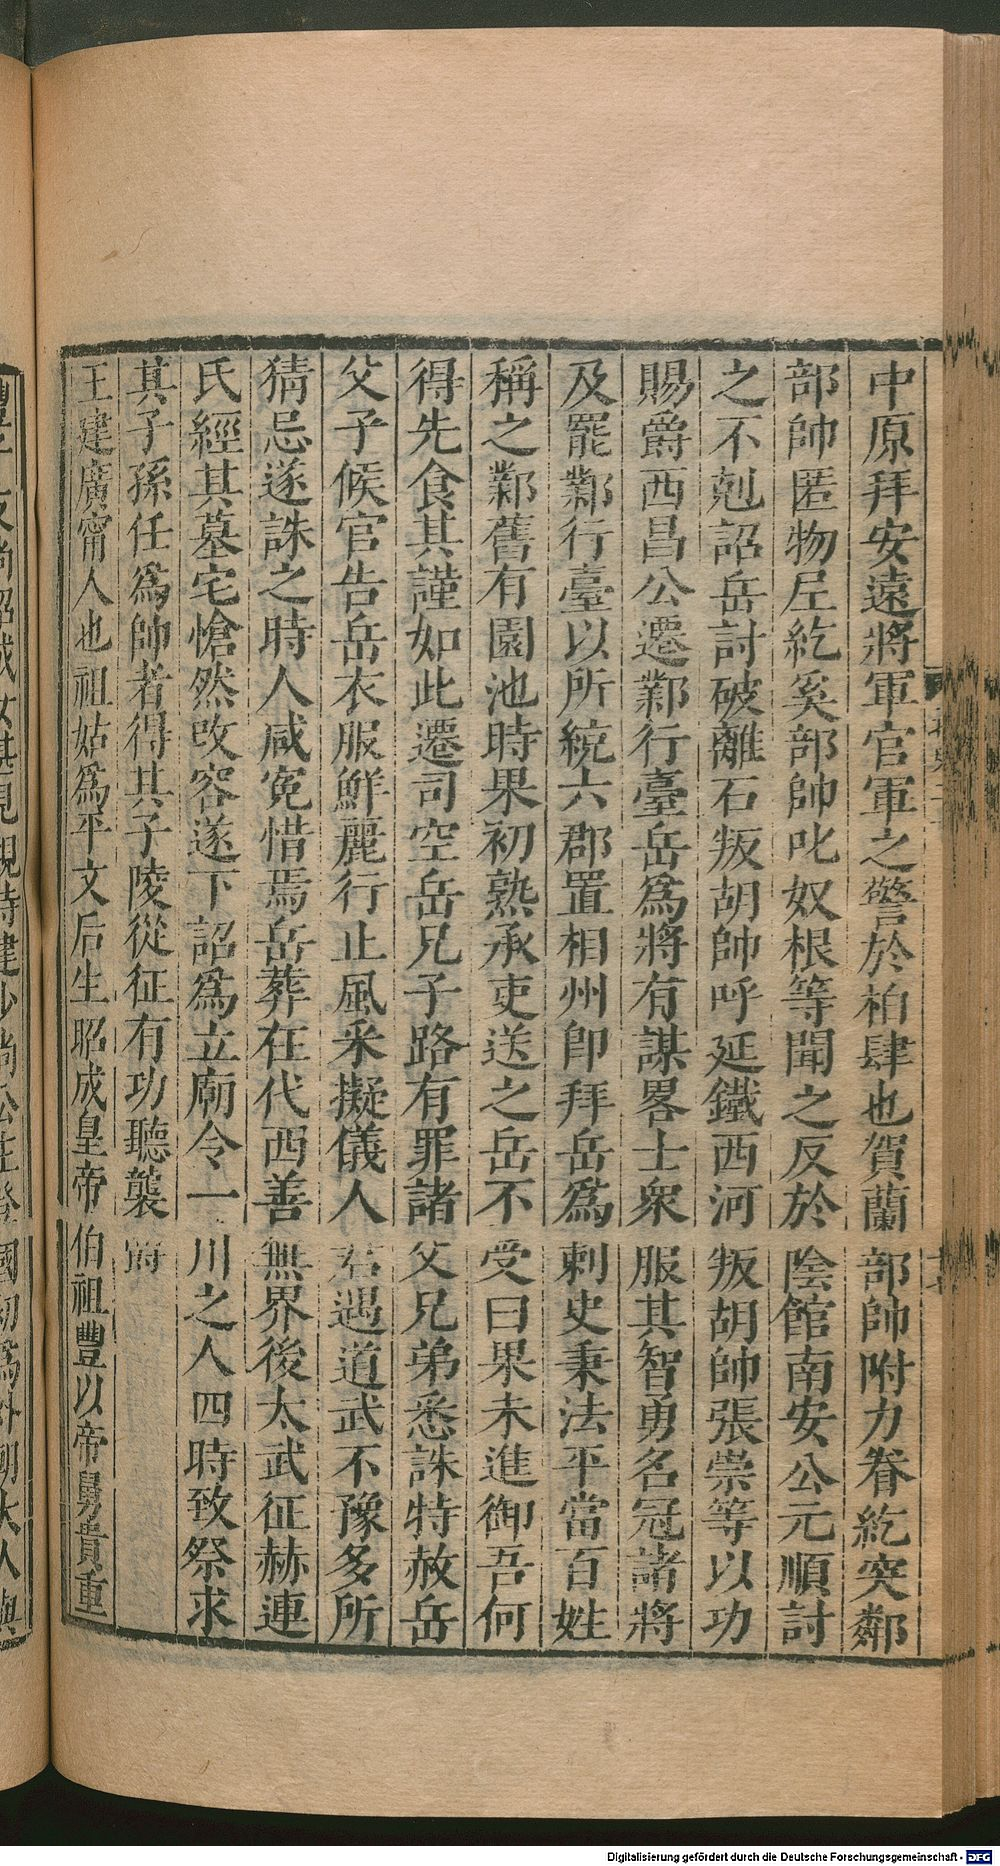 中原拜安遠將軍官軍之警於柏肆也賀蘭部帥附力眷紇突鄰
部帥匿物𡰱紇奚部帥叱奴根等聞之反於陰館南安公元順討
之不剋詔岳討破離石叛胡帥呼延鐵西河叛胡帥張崇等以功
賜爵西昌公遷鄴行臺岳爲將有謀畧士衆服其智勇名冠諸將
及罷鄴行臺以所統六郡置相州卽拜岳爲刺史秉法平當百姓
稱之鄴舊有園池時果初熟承吏送之岳不受曰果未進御吾何
得先食其謹如此遷司空岳兄子路有罪諸父兄弟悉誅特赦岳
父子候官告岳衣服鮮麗行止風采擬儀人君遇道武不豫多所
猜忌遂誅之時人咸寃惜焉岳葬在代西善無界後太武征赫連
氏經其墓宅愴然改容遂下詔爲立廟令一川之人四時致祭求
其子孫任爲帥者得其子陵從征有功聽襲爵
王建廣甯人也祖姑爲平文后生昭成皇帝伯祖豐以帝舅貴重
Digitalisierung gefördert durch die Deutsche Forschungsgemeinschaft - DFG